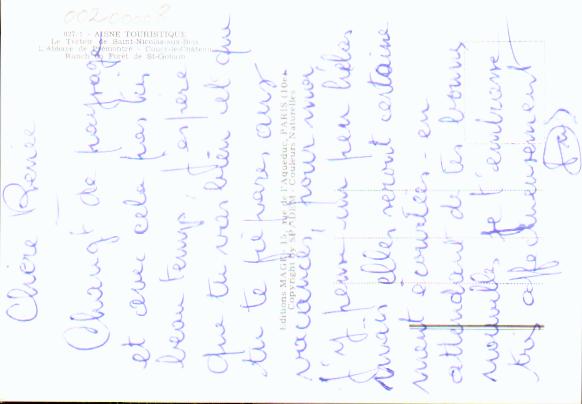 00200008
027.1 - AISNE TOURISTIQUE
Le Tortoir de Saint-Nicolas-aux-Bois
L'Abbaye de Prémontré - Coucy-le-Château
Ranch en Forêt de St-Gobain
Editions MAGE - 15, Rue de l'Aqueduc, PARIS (10e)
Copyright by SPADEM - Couleurs Naturelles
Chère Renée
Changt de paysage
et avec cela pas
beau temps. J'espère
que tu vas bien et que
tu te prépares aux
vacances, pour moi
j'y pense un peu hélas
mais elles seront certaine
ment écourtées - en
attendant de tes bonnes
nouvelles, je t'embrasse
très affectueusement